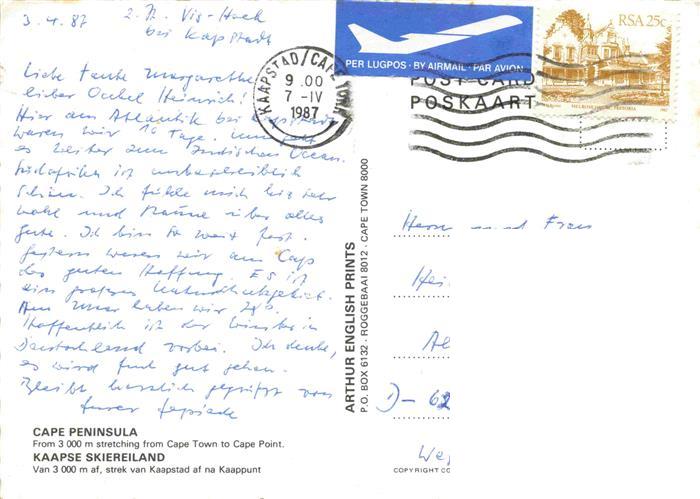 3.4.87 z. Zt. Vis-Hoek
bei Kapstadt
Liebe Tante Margarethe
lieber Onkel Heinrich!
Hier am Atlantik bei Kapstadt
waren wir 10 Tage.
es weiter zum Indischen Ozean.
Südafrika ist unbeschreiblich
schön. Ich fühle mich hier sehr
wohl und staune über alles
gute. Ich bin
Gestern waren wir am Cap
der guten Hoffnung. Es ist
ein grosses Naturschutzgebiet.
haben wir
Hoffentlich ist der Winter in
Deutschland vorbei. Ich denke,
es wird gut gehen.
Bleibt herzlich gegrüsst von
Eurer
CAPE PENINSULA
From 3 000 m stretching from Cape Town to Cape Point.
KAAPSE SKIEREILAND
Van 3 000 m af, strek van Kaapstad af na Kaappunt
KAAPSTAD/CAPE TOWN
9.00
7 -IV
1987
PER LUGPOS · BY AIRMAIL · PAR AVION
RSA 25c
MELROSE HOUSE, PRETORIA
POST CARD
POSKAART
ARTHUR ENGLISH PRINTS
P.O. BOX 6132 · ROGGEBAAI 8012 · CAPE TOWN 8000
Herrn und Frau
Hei
Al
D-62
We
COPYRIGHT CO